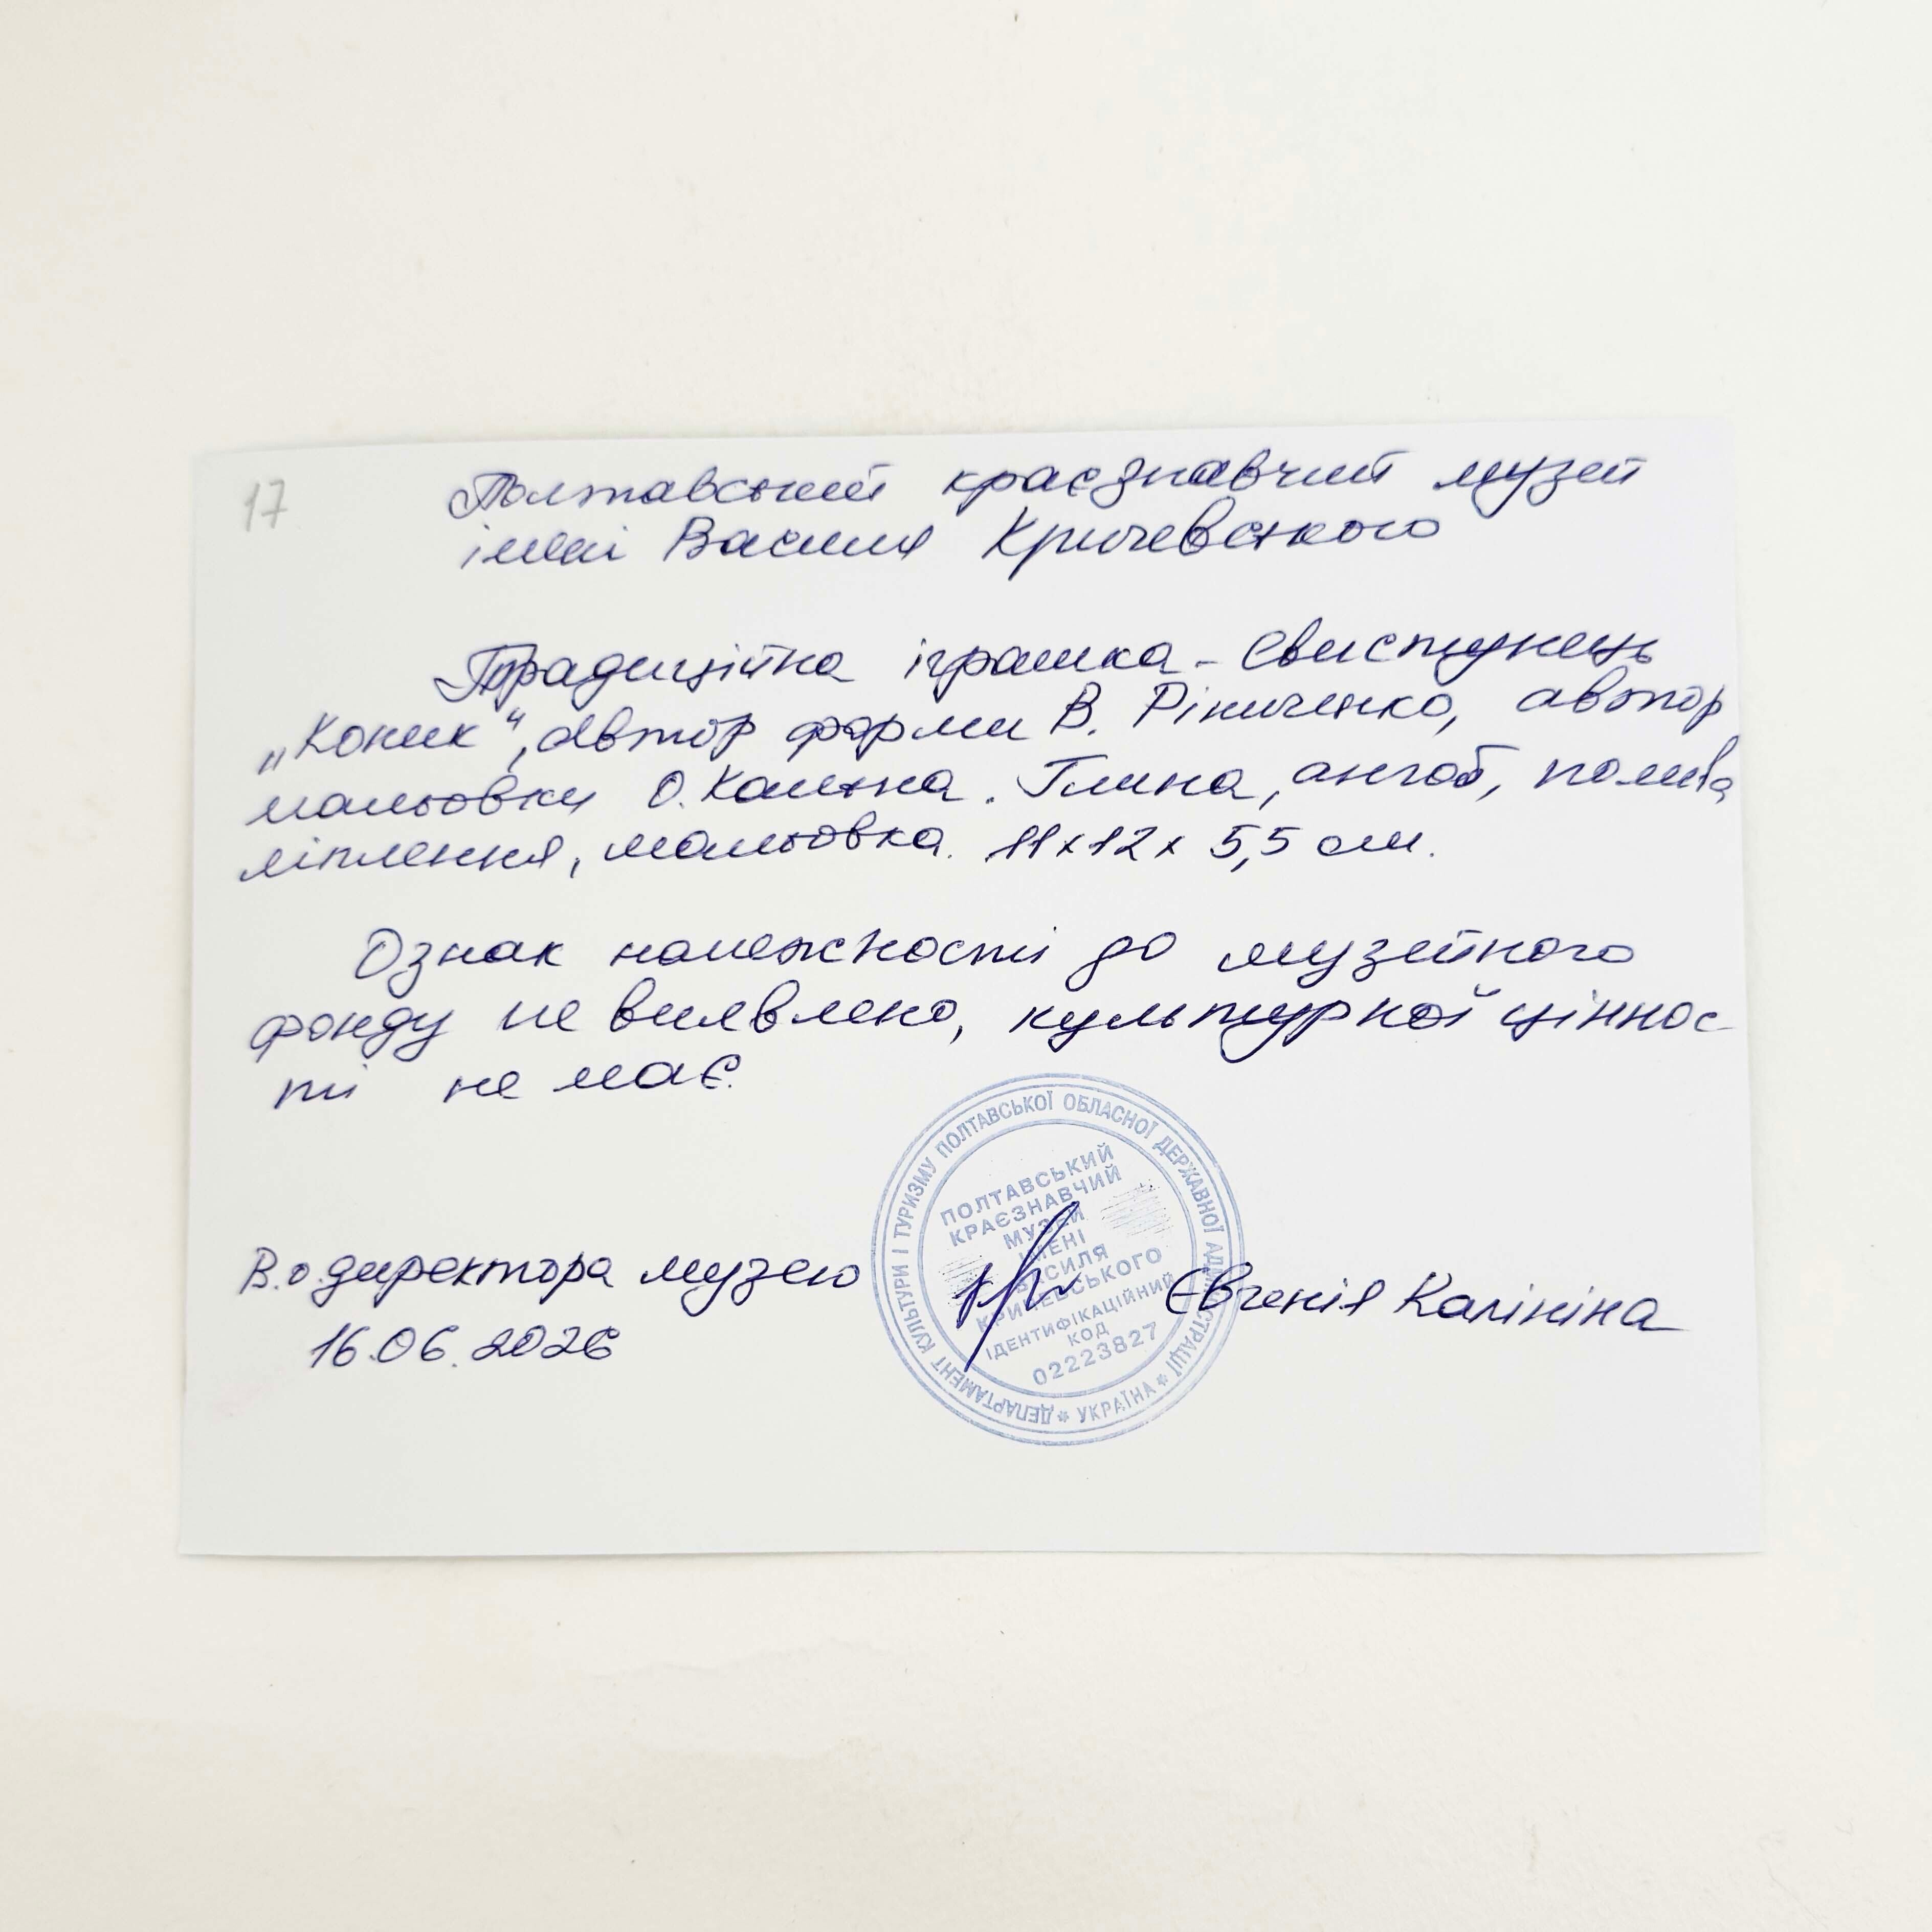 17
Полтавський краєзнавчий музей
імені Василя Кричевського
Традиційна іграшка-свистунець
„Коник“, автор форми В. Рініченко, автор
мальовки О. Калина. Глина, ангоб, полива,
ліплення, мальовка. 11х12х 5,5 см.
Ознак належності до музейного
фонду не виявлено, культурної ціннос-
ті не має.
В.о.директора музею Євгенія Калініна
16.06.2026
ДЕПАРТАМЕНТ КУЛЬТУРИ І ТУРИЗМУ ПОЛТАВСЬКОЇ ОБЛАСНОЇ ДЕРЖАВНОЇ АДМІНІСТРАЦІЇ * УКРАЇНА *
ПОЛТАВСЬКИЙ
КРАЄЗНАВЧИЙ
МУЗЕЙ
ІМЕНІ
ВАСИЛЯ
КРИЧЕВСЬКОГО
ІДЕНТИФІКАЦІЙНИЙ
КОД
02223827